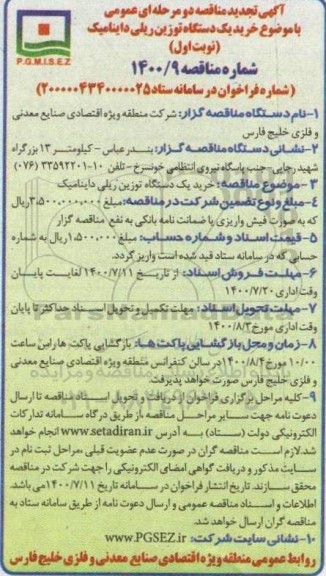 آگهی تجدید مناقصه دو مرحله ای عمومی
با موضوع خرید یک دستگاه توزین ریلی داینامیک
(نوبت اول)
P.G.M.I.S.E.Z
شماره مناقصه ۱۴۰۰/۹
(شماره فراخوان در سامانه ستاد ۲۰۰۰۰۰۴۳۴۰۰۰۰۰۲۵)
۱-نام دستگاه مناقصه گزار: شرکت منطقه ویژه اقتصادی صنایع معدنی
و فلزی خلیج فارس
۲-نشانی دستگاه مناقصه گزار: بندرعباس - کیلومتر ۱۳ بزرگراه
شهید رجایی-جنب پاسگاه نیروی انتظامی خونسرخ-تلفن ۱۰-۳۳۵۹۲۲۰۱ (۰۷۶)
۳-موضوع مناقصه: خرید یک دستگاه توزین ریلی داینامیک
۴-مبلغ و نوع تضمین شرکت در مناقصه: مبلغ ۳،۵۰۰،۰۰۰،۰۰۰ ریال
که به صورت فیش واریزی یا ضمانت نامه بانکی به نفع مناقصه گزار
۵-قیمت اسناد و شماره حساب: مبلغ ۱،۵۰۰،۰۰۰ ریال به شماره
حسابی که در سامانه ستاد قید شده است واریز گردد.
۶-مهلت فروش اسناد: از تاریخ ۱۴۰۰/۷/۱۱ لغایت پایان
وقت اداری ۱۴۰۰/۷/۲۰
۷-مهلت تحویل اسناد: مهلت تکمیل و تحویل اسناد حداکثر تا پایان
وقت اداری مورخ ۱۴۰۰/۸/۳
۸-زمان و محل بازگشایی پاکت ها: بازگشایی پاکت ها راس ساعت
۱۰/۰۰ مورخ ۱۴۰۰/۸/۴ در سالن کنفرانس منطقه ویژه اقتصادی صنایع معدنی
و فلزی خلیج فارس صورت خواهد پذیرفت.
۹-کلیه مراحل برگزاری فراخوان از دریافت و تحویل اسناد مناقصه تا ارسال
دعوت نامه جهت سایر مراحل مناقصه از طریق درگاه سامانه تدارکات
الکترونیکی دولت (ستاد) به آدرس www.setadiran.ir انجام خواهد
شد.لازم است مناقصه گران در صورت عدم عضویت قبلی ،مراحل ثبت نام در
سایت مذکور و دریافت گواهی امضای الکترونیکی را جهت شرکت در مناقصه
محقق سازند. تاریخ انتشار فراخوان در سامانه تاریخ ۱۴۰۰/۷/۱۱ می باشد.
اطلاعات و اسناد مناقصه عمومی و ارسال دعوت نامه از طریق سامانه ستاد به
مناقصه گران ارسال خواهد شد.
۱۰-نشانی سایت شرکت: www.PGSEZ.ir
روابط عمومی منطقه ویژه اقتصادی صنایع معدنی و فلزی خلیج فارس